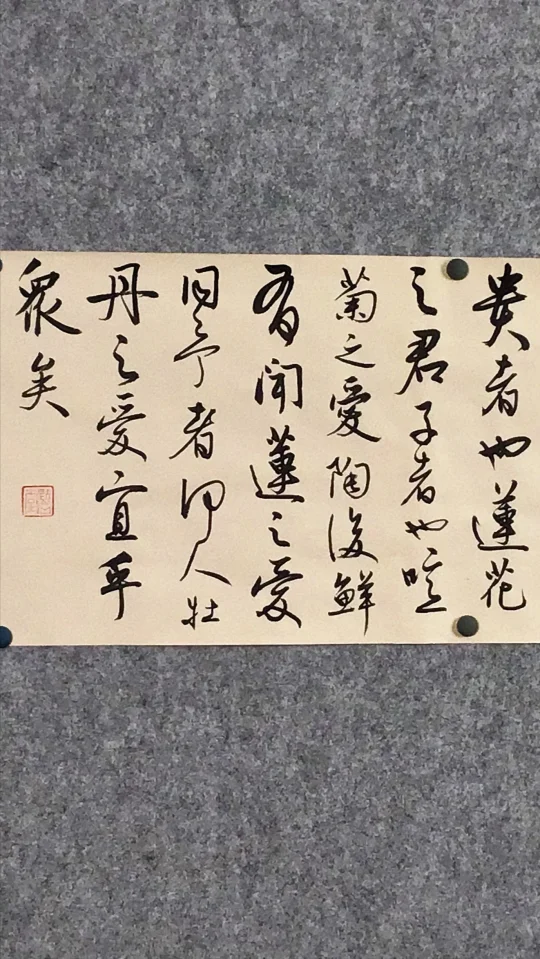 貴者也蓮花
之君子者也噫
菊之愛陶後鮮
有聞蓮之愛
同予者何人牡
丹之愛宜乎
眾矣